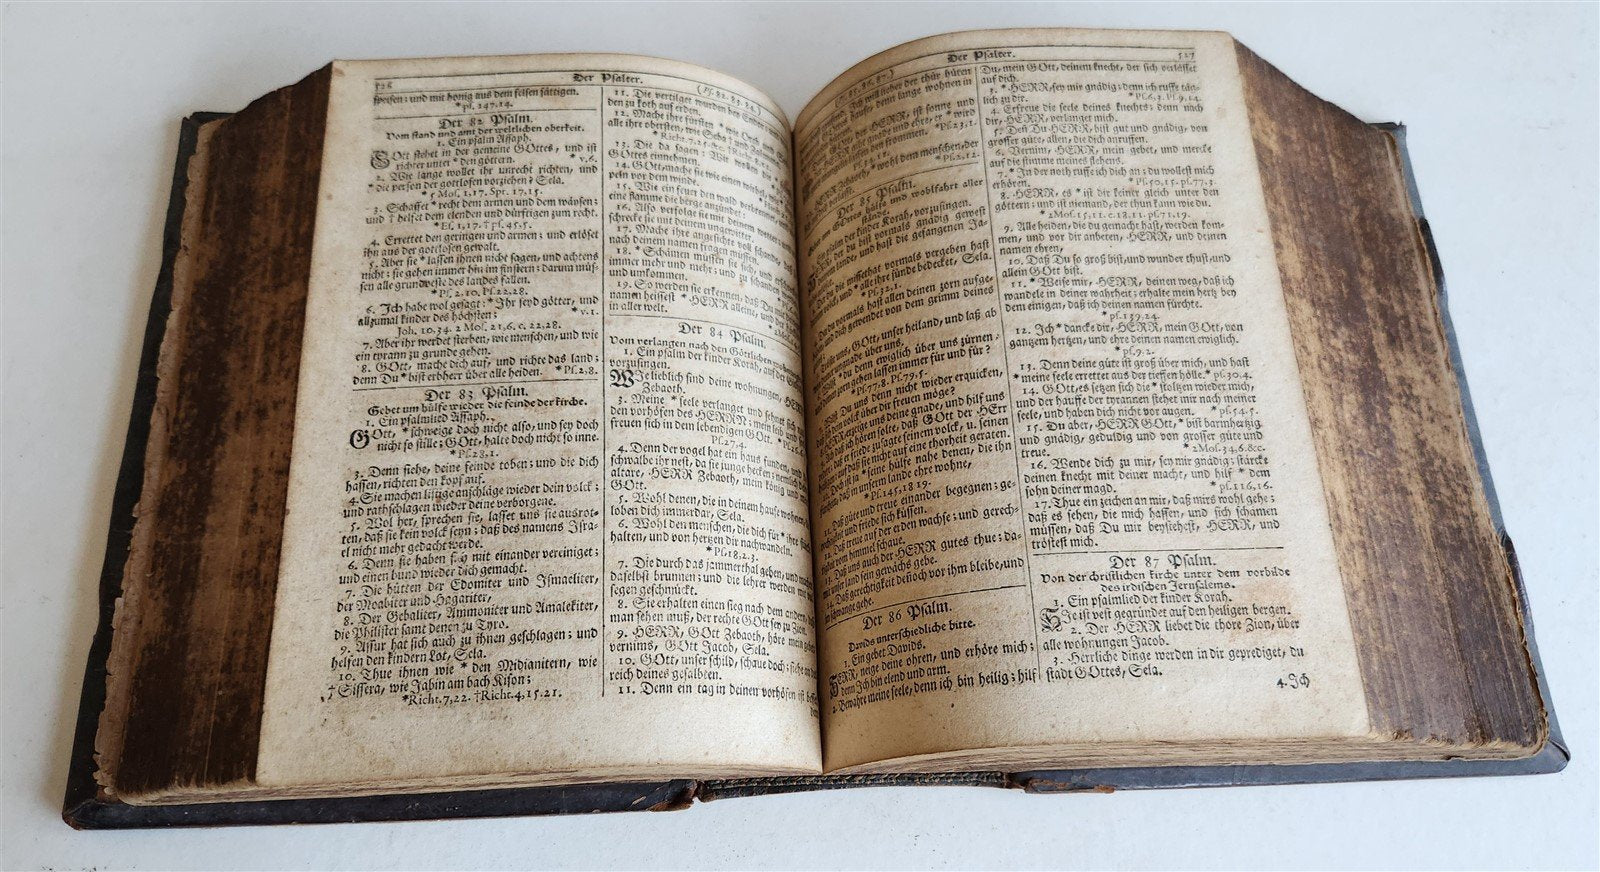 528
Der Psalter.
(Ps. 82. 83. 84.)
speisen; und mit honig aus dem felsen sättigen.
*ps. 147. 14.
Der 82 Psalm.
Vom stand und amt der weltlichen oberkeit.
1. Ein psalm Assaph.
GOtt stehet in der gemeine GOttes, und ist
richter unter * den göttern. * v. 6.
2. Wie lange wollet ihr unrecht richten, und
* die person der gottlosen vorziehen? Sela.
* 5 Mos. 1, 17. Spr. 17, 15.
3. Schaffet * recht dem armen und dem wäysen;
und † helfet dem elenden und dürftigen zum recht.
*Es. 1, 17. † ps. 45. 5.
4. Errettet den geringen und armen; und erlöset
ihn aus der gottlosen gewalt.
5. Aber sie * lassen ihnen nicht sagen, und achtens
nicht; sie gehen immer hin im finstern; darum müs-
sen alle grundveste des landes fallen.
*Ps. 2. 10. Ps. 22. 28.
6. Ich habe wol gesagt: * Ihr seyd götter, und
allzumal kinder des höchsten; * v. 1.
Joh. 10. 34. 2 Mos. 21, 6. c. 22, 28.
7. Aber ihr werdet sterben, wie menschen, und wie
ein tyrann zu grunde gehen.
8. GOtt, mache dich auf, und richte das land;
denn Du * bist erbherr über alle heiden. *Ps. 2, 8.
Der 83 Psalm.
Gebet um hülfe wieder die feinde der kirche.
1. Ein psalmlied Assaph.
GOtt, * schweige doch nicht also, und sey doch
nicht so stille; GOtt, halte doch nicht so inne.
*Ps. 28, 1.
3. Denn siehe, deine feinde toben; und die dich
hassen, richten den kopf auf.
4. Sie machen listige anschläge wieder dein volck;
und rathschlagen wieder deine verborgene.
5. Wol her, sprechen sie, lasset uns sie ausrot-
ten, daß sie kein volck seyn; daß des namens Isra-
el nicht mehr gedacht werde.
6. Denn sie haben sich mit einander vereiniget;
und einen bund wieder dich gemacht.
7. Die hütten der Edomiter und Ismaeliter,
der Moabiter und Hagariter,
8. Der Gebaliter, Ammoniter und Amalekiter,
die Philister samt denen zu Tyro.
9. Assur hat sich auch zu ihnen geschlagen; und
helfen den kindern Lot, Sela.
10. Thue ihnen wie * den Midianitern, wie
† Sissera, wie Jabin am bach Kison;
*Richt. 7, 22. †Richt. 4, 15. 21.
11. Die vertilget wurden bey Endor,
den zu koth auf erden.
12. Mache ihre fürsten * wie Oreb und
alle ihre obersten, wie Seba und
* Richt. 7, 25.
13. Die da sagen: Wir wollen die
GOttes einnehmen.
14. GOtt, mache sie wie einen wirbel,
peln vor dem winde.
15. Wie ein feuer den wald verbrennet,
eine flamme die berge anzündet:
16. Also verfolge sie mit deinem wetter,
schrecke sie mit deinem ungewitter.
17. Mache ihre angesichte voll schande,
nach deinem namen fragen müssen.
18. * Schämen müssen sie sich, und
immer mehr und mehr; und zu schanden
und umkommen.
19. So werden sie erkennen, daß Du mit
namen heissest * HERR alleine, und der
in aller welt.
Der 84 Psalm.
Vom verlangen nach den Göttlichen
1. Ein psalm der kinder Korah, auf der
vorzusingen.
WIe lieblich sind deine wohnungen, HERR
Zebaoth.
3. Meine * seele verlanget und sehnet sich
den vorhöfen des HERRN; mein leib und
freuen sich in dem lebendigen GOtt.
Ps. 27. 4.
4. Denn der vogel hat ein haus funden, und
schwalbe ihr nest, da sie junge hecken; nemlich
altare, HERR Zebaoth, mein könig und mein
GOtt.
5. Wohl denen, die in deinem hause wohnen,
loben dich immerdar, Sela.
6. Wohl den menschen, die dich für * ihre
halten, und von hertzen dir nachwandeln.
* Ps. 18. 2. 3.
7. Die durch das jammerthal gehen, und machen
daselbst brunnen; und die lehrer werden mit
segen geschmückt.
8. Sie erhalten einen sieg nach dem andern,
man sehen muß, der rechte GOtt sey zu Zion.
9. HERR, GOtt Zebaoth, höre mein gebet
vernims, GOtt Jacob, Sela.
10. GOtt, unser schild, schaue doch; siehe an
reich deines gesalbten.
11. Denn ein tag in deinen vorhöfen ist
(Ps. 85. 86. 87.)
Der Psalter.
527
Ich will lieber der thür hüten
denn lange wohnen in
der HERR, ist sonne und
* wird
*Ps. 23. 1.
Zebaoth, * wohl dem menschen, der
* Ps. 2, 12.
Der 85 Psalm.
GOttes hülfe und wohlfahrt aller
stände.
der kinder Korah, vorzusingen.
der du bist vormals gnädig gewest
deinem lande, und hast die gefangenen Ja-
die missethat vormals vergeben hast
volck, und * alle ihre sünde bedecket, Sela.
* Ps. 32, 1.
du vormals hast allen deinen zorn aufge-
und dich gewendet von dem grimm deines
uns, GOtt, unser heiland, und laß ab
ungnade über uns.
du denn ewiglich über uns zürnen;
zorn gehen lassen immer für und für?
* Ps. 77. 8. Ps. 79. 5.
Du uns denn nicht wieder erquicken,
dein volck über dir freuen möge?
HERR, erzeige uns deine gnade, und hilf uns
daß ich hören solte, daß GOtt der HErr
daß er friede zusagte seinem volck, u. seinen
auf daß sie nicht auf eine thorheit geraten.
Doch ist ja * seine hülfe nahe denen, die ihn
daß in unserm lande ehre wohne,
*Ps. 145, 18. 19.
11. Daß güte und treue einander begegnen; ge-
und friede sich küssen.
12. Daß treue auf der erden wachse; und gerech-
vom himmel schaue.
13. Daß uns auch der HERR gutes thue; da-
mit unser land sein gewächs gebe.
14. Daß gerechtigkeit dennoch vor ihm bleibe, und
im schwange gehe.
Der 86 Psalm.
Davids unterschiedliche bitte.
1. Ein gebet Davids.
HERR, neige deine ohren, und erhöre mich;
denn Ich bin elend und arm.
2. Bewahre meine seele, denn ich bin heilig; hilf
Du, mein GOtt, deinem knecht, der sich verlässet
auf dich.
3. * HERR, sey mir gnädig; denn ich ruffe täg-
lich zu dir. * Ps. 6. 3. Ps. 9. 14.
4. Erfreue die seele deines knechts; denn nach
dir, HERR, verlanget mich.
5. Denn Du HERR, bist gut und gnädig, von
grosser güte, allen, die dich anruffen.
6. Vernim, HERR, mein gebet, und mercke
auf die stimme meines flehens.
7. * In der noth ruffe ich dich an; du wollest mich
erhören. * Ps. 50, 15. ps. 77. 3.
8. HERR, es * ist dir keiner gleich unter den
göttern; und ist niemand, der thun kann wie du.
* 2Mos. 15, 11. c. 18. 11. ps. 71, 19.
9. Alle heiden, die du gemacht hast, werden kom-
men, und vor dir anbeten, HERR, und deinen
namen ehren,
10. Daß Du so groß bist, und wunder thust, und
allein GOtt bist.
11. * Weise mir, HERR, deinen weg, daß ich
wandele in deiner wahrheit; erhalte mein hertz bey
dem einigen, daß ich deinen namen fürchte.
* ps. 139. 24.
12. Ich * dancke dir, HERR, mein GOtt, von
gantzem hertzen, und ehre deinen namen ewiglich.
* ps. 9. 2.
13. Denn deine güte ist groß über mich, und hast
* meine seele errettet aus der tieffen hölle. * ps. 30. 4.
14. GOtt, es setzen sich die * stoltzen wieder mich,
und der hauffe der tyrannen stehet mir nach meiner
seele, und haben dich nicht vor augen. * ps. 54. 5.
15. Du aber, HERR GOtt, * bist barmhertzig
und gnädig, geduldig und von grosser güte und
treue. * 2Mos. 34, 6. &c.
16. Wende dich zu mir, sey mir gnädig; stärcke
deinen knecht mit deiner macht, und hilf * dem
sohn deiner magd. * ps. 116, 16.
17. Thue ein zeichen an mir, daß mirs wohl gehe;
daß es sehen, die mich hassen, und sich schämen
müssen, daß Du mir beystehest, HERR, und
tröstest mich.
Der 87 Psalm.
Von der christlichen kirche unter dem vorbilde
des irdischen Jerusalems.
1. Ein psalmlied der kinder Korah.
SIe ist vest gegründet auf den heiligen bergen.
2. Der HERR liebet die thore Zion, über
alle wohnungen Jacob.
3. Herrliche dinge werden in dir geprediget, du
stadt GOttes, Sela.
4. Ich